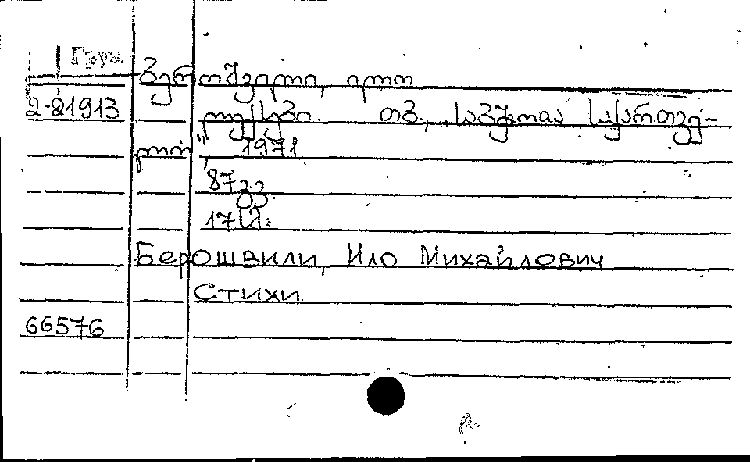 Груз
ბეროშვილი, ილო
2-21913 ლექსები. თბ., „საბჭოთა საქართვე-
ლო", 1971
87 გვ
17 სმ.
Берошвили, Ило Михайлович
Стихи
66576